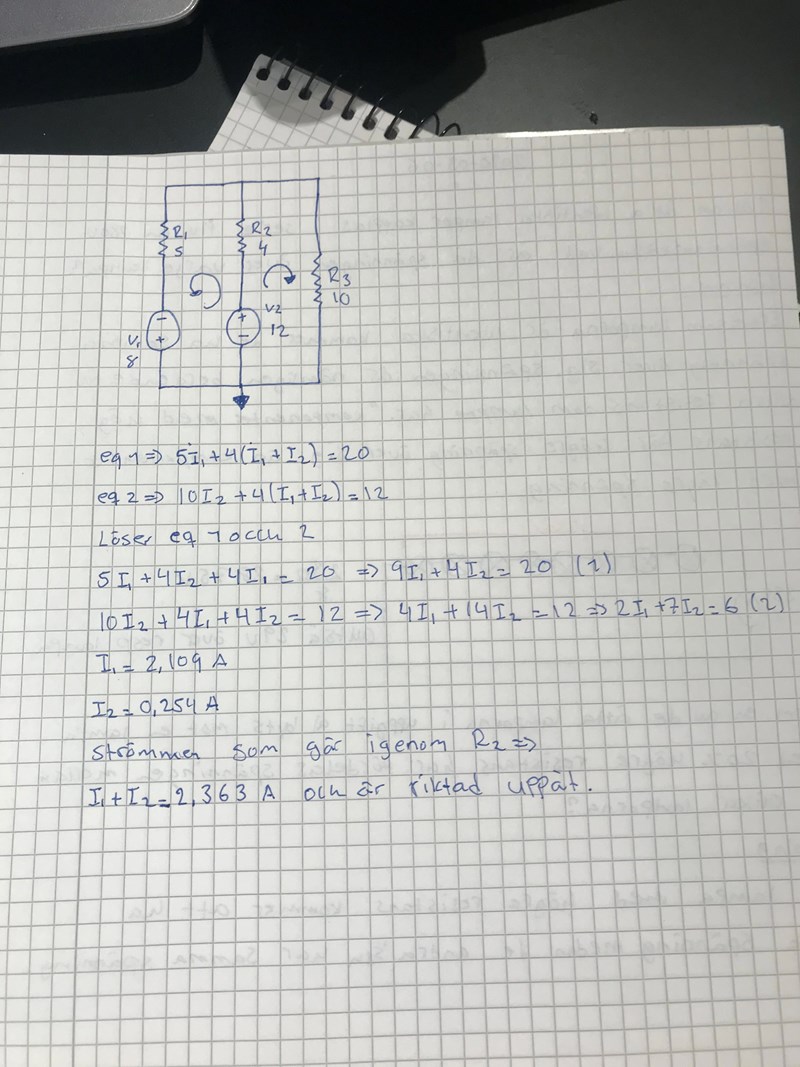 R₁ R₂
5 4
R₃
10
V₁ - +
8
V₂ + -
12
eq 1 => 5I₁ + 4(I₁ + I₂) = 20
eq 2 => 10I₂ + 4(I₁ + I₂) = 12
Löser eq 1 occh 2
5I₁ + 4I₂ + 4I₁ = 20 => 9I₁ + 4I₂ = 20 (1)
10I₂ + 4I₁ + 4I₂ = 12 => 4I₁ + 14I₂ = 12 => 2I₁ + 7I₂ = 6 (2)
I₁ = 2,109 A
I₂ = 0,254 A
Strömmen som går igenom R₂ =>
I₁ + I₂ = 2,363 A och är riktad uppåt.